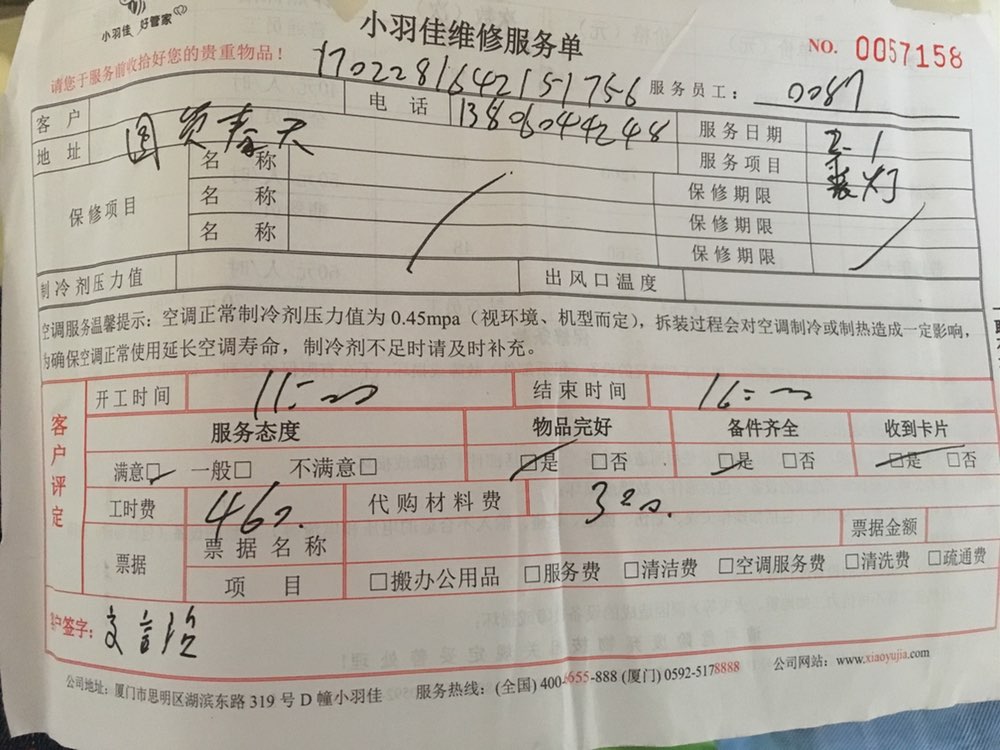 小羽佳 好管家
小羽佳维修服务单
NO. 0057158
请您于服务前收拾好您的贵重物品！
1702281642151756 服务员工： 0087
客户 电话 13806044248 服务日期 3-1
地址 圆 春天 服务项目 装灯
保修项目 名称 保修期限
名称 保修期限
名称 保修期限
制冷剂压力值 出风口温度
空调服务温馨提示：空调正常制冷剂压力值为 0.45mpa（视环境、机型而定），拆装过程会对空调制冷或制热造成一定影响，
为确保空调正常使用延长空调寿命，制冷剂不足时请及时补充。
客户评定
开工时间 11:00 结束时间 16:00
服务态度 物品完好 备件齐全 收到卡片
满意□ 一般□ 不满意□ □是 □否 □是 □否 □是 □否
工时费 460. 代购材料费 320.
票据 票据名称 票据金额
项目 □搬办公用品 □服务费 □清洁费 □空调服务费 □清洗费 □疏通费
客户签字：
公司地址：厦门市思明区湖滨东路 319 号 D 幢小羽佳 服务热线：(全国) 400-655-888 (厦门) 0592-5178888 公司网站：www.xiaoyujia.com